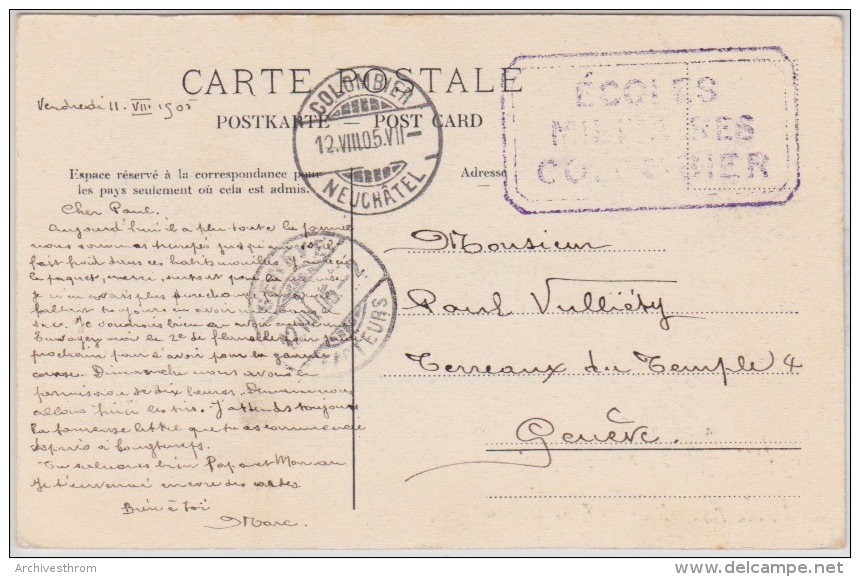 CARTE POSTALE
Vendredi 11. VIII 1905
POSTKARTE — POST CARD
COLOMBIER
12.VIII.05.VII—
NEUCHÂTEL
ÉCOLES
MILITAIRES
COLOMBIER
Espace réservé à la correspondance pour
les pays seulement où cela est admis.
Adresse
Cher Paul.
Aujourd'hui il a plu toute la journée
nous sommes trempés jusqu'
fait froid dans ces habits mouillés. J'ai reçu
le paquet, merci, surtout pour la
je n'en avais plus
fallait toujours en avoir
sec. Je voudrais bien
Envoyez moi le 2e de flanelle
prochain pour l'avoir pour la grande
course. Dimanche nous avons
permission de dix heures. Demain nous
allons finir les tirs. J'attends toujours
la fameuse lettre que tu as commencée
depuis si longtemps.
Tu salueras bien Papa et Maman
Je t'enverrai encore des cartes.
Bien à toi
Marc.
GENÈVE
12.VIII.05
FACTEURS
Monsieur
Paul Vulliéty
Terreaux du Temple 4
Genève.
Archivesthrom
www.delcampe.net